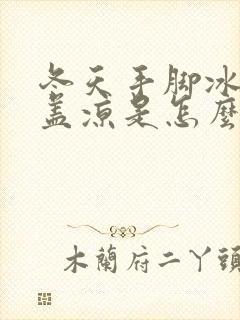 冬天手脚冰
盖凉是怎麽
木蘭府二丫頭